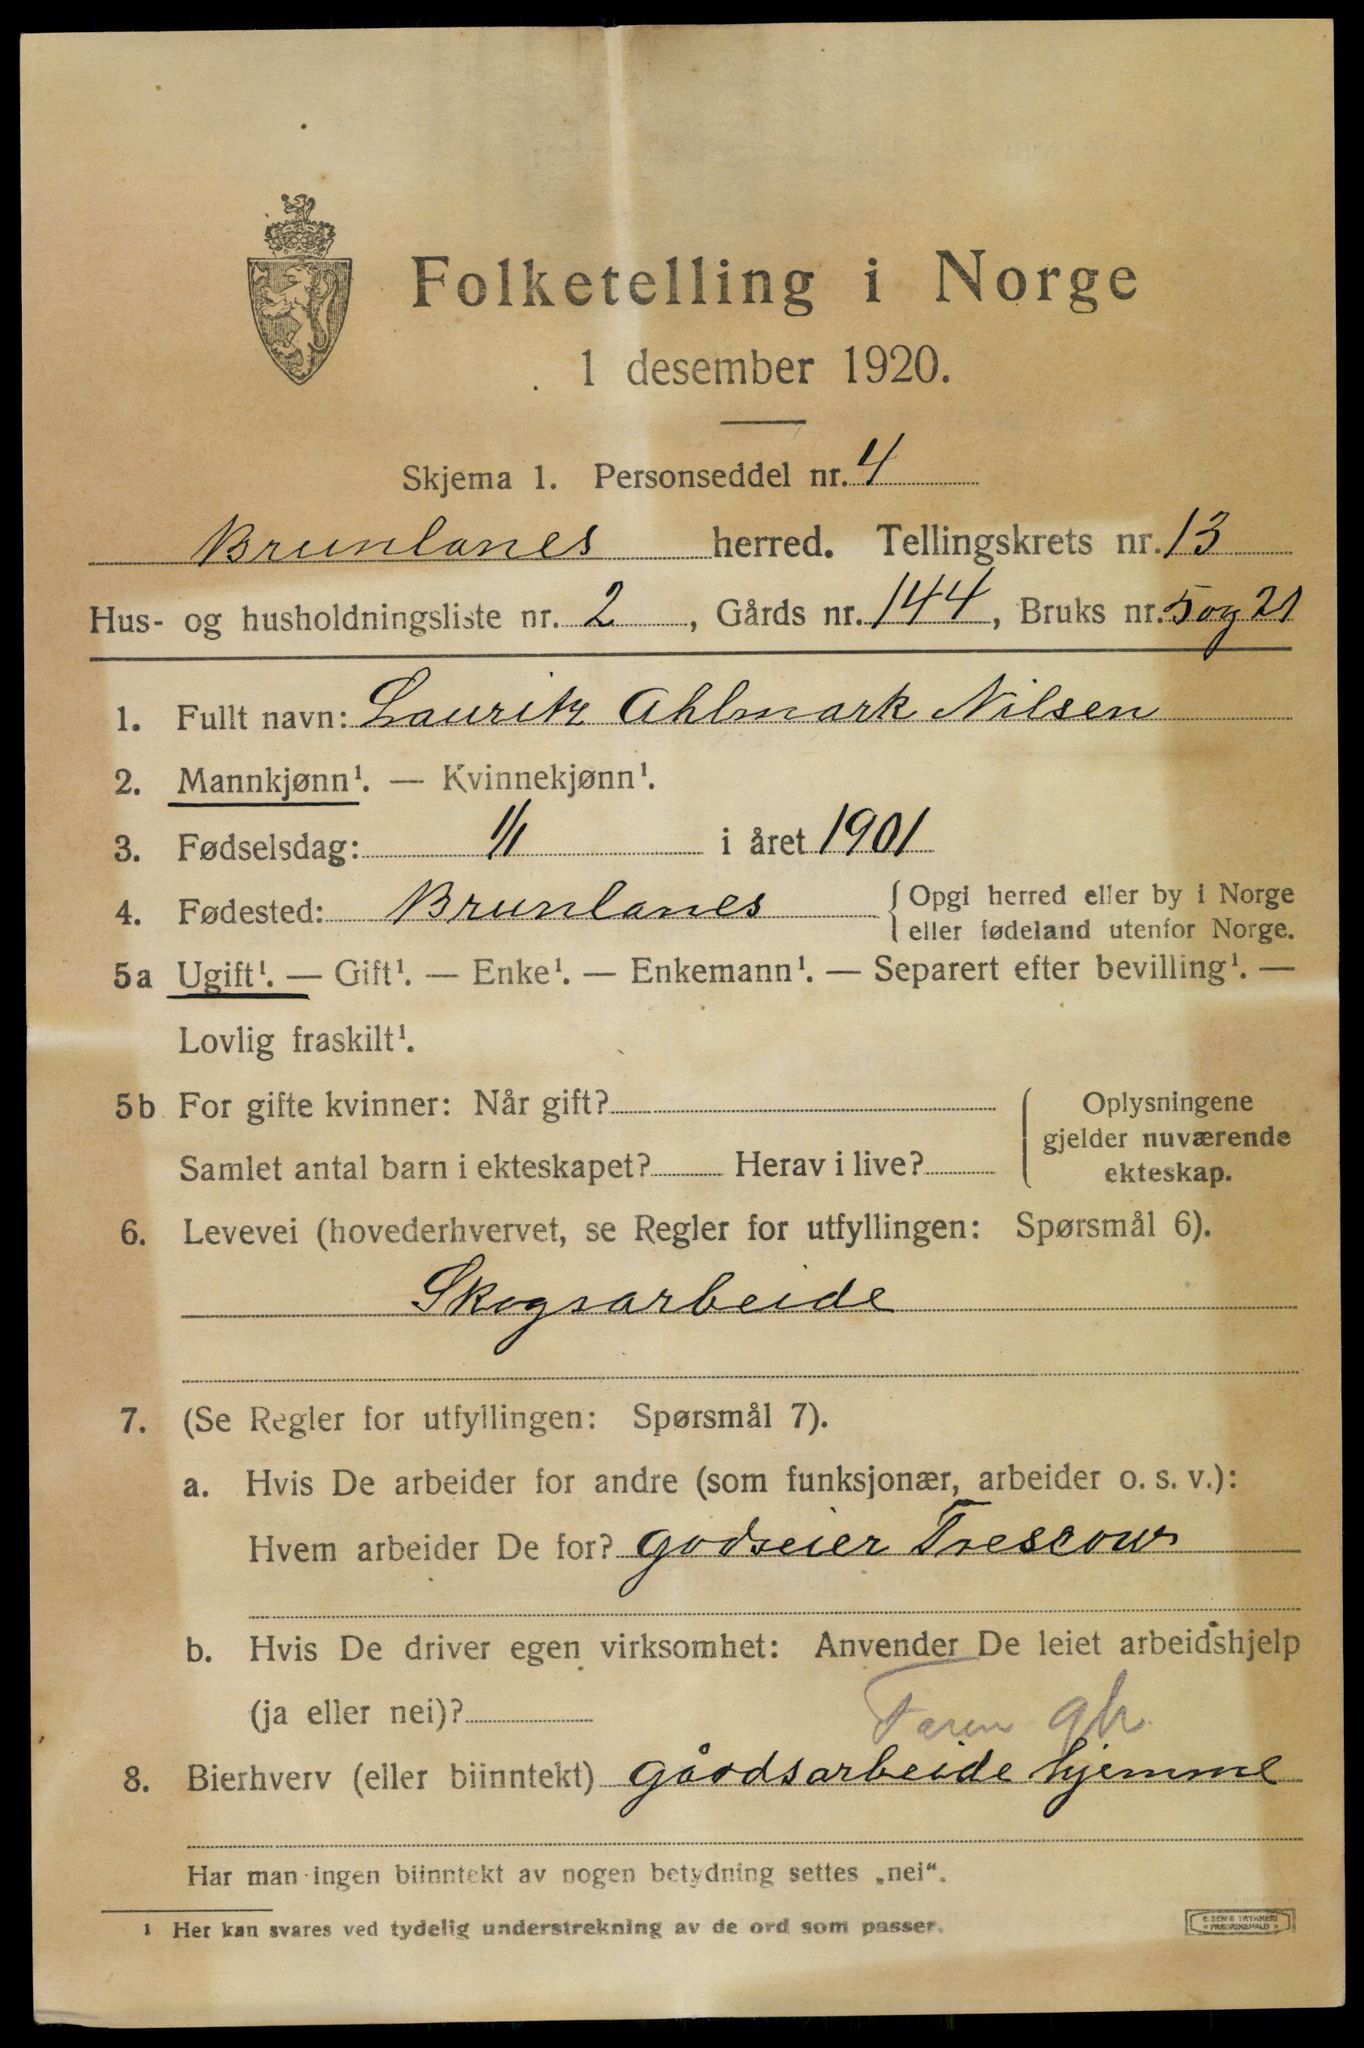 Folketelling i Norge
1 desember 1920.
Skjema 1. Personseddel nr. 4
Brunlanes herred. Tellingskrets nr. 13
Hus- og husholdningsliste nr. 2, Gårds nr. 144, Bruks nr. 5 og 21
1. Fullt navn: Lauritz Ahlmark Nilsen
2. Mannkjønn¹. — Kvinnekjønn¹.
3. Fødselsdag: 1/1 i året 1901
4. Fødested: Brunlanes { Opgi herred eller by i Norge
eller fødeland utenfor Norge.
5a Ugift¹. — Gift¹. — Enke¹. — Enkemann¹. — Separert efter bevilling¹. —
Lovlig fraskilt¹.
5b For gifte kvinner: Når gift?
Samlet antal barn i ekteskapet? Herav i live?
Oplysningene
gjelder nuværende
ekteskap.
6. Levevei (hovederhvervet, se Regler for utfyllingen: Spørsmål 6).
Skogsarbeide
7. (Se Regler for utfyllingen: Spørsmål 7).
a. Hvis De arbeider for andre (som funksjonær, arbeider o. s. v.):
Hvem arbeider De for? godseier Trescow
b. Hvis De driver egen virksomhet: Anvender De leiet arbeidshjelp
(ja eller nei)?
Faren gbr.
8. Bierhverv (eller biinntekt) gårdsarbeide hjemme
Har man ingen biinntekt av nogen betydning settes „nei“.
¹ Her kan svares ved tydelig understrekning av de ord som passer.
E. SEM'S TRYKKERI
FREDRIKSHALD